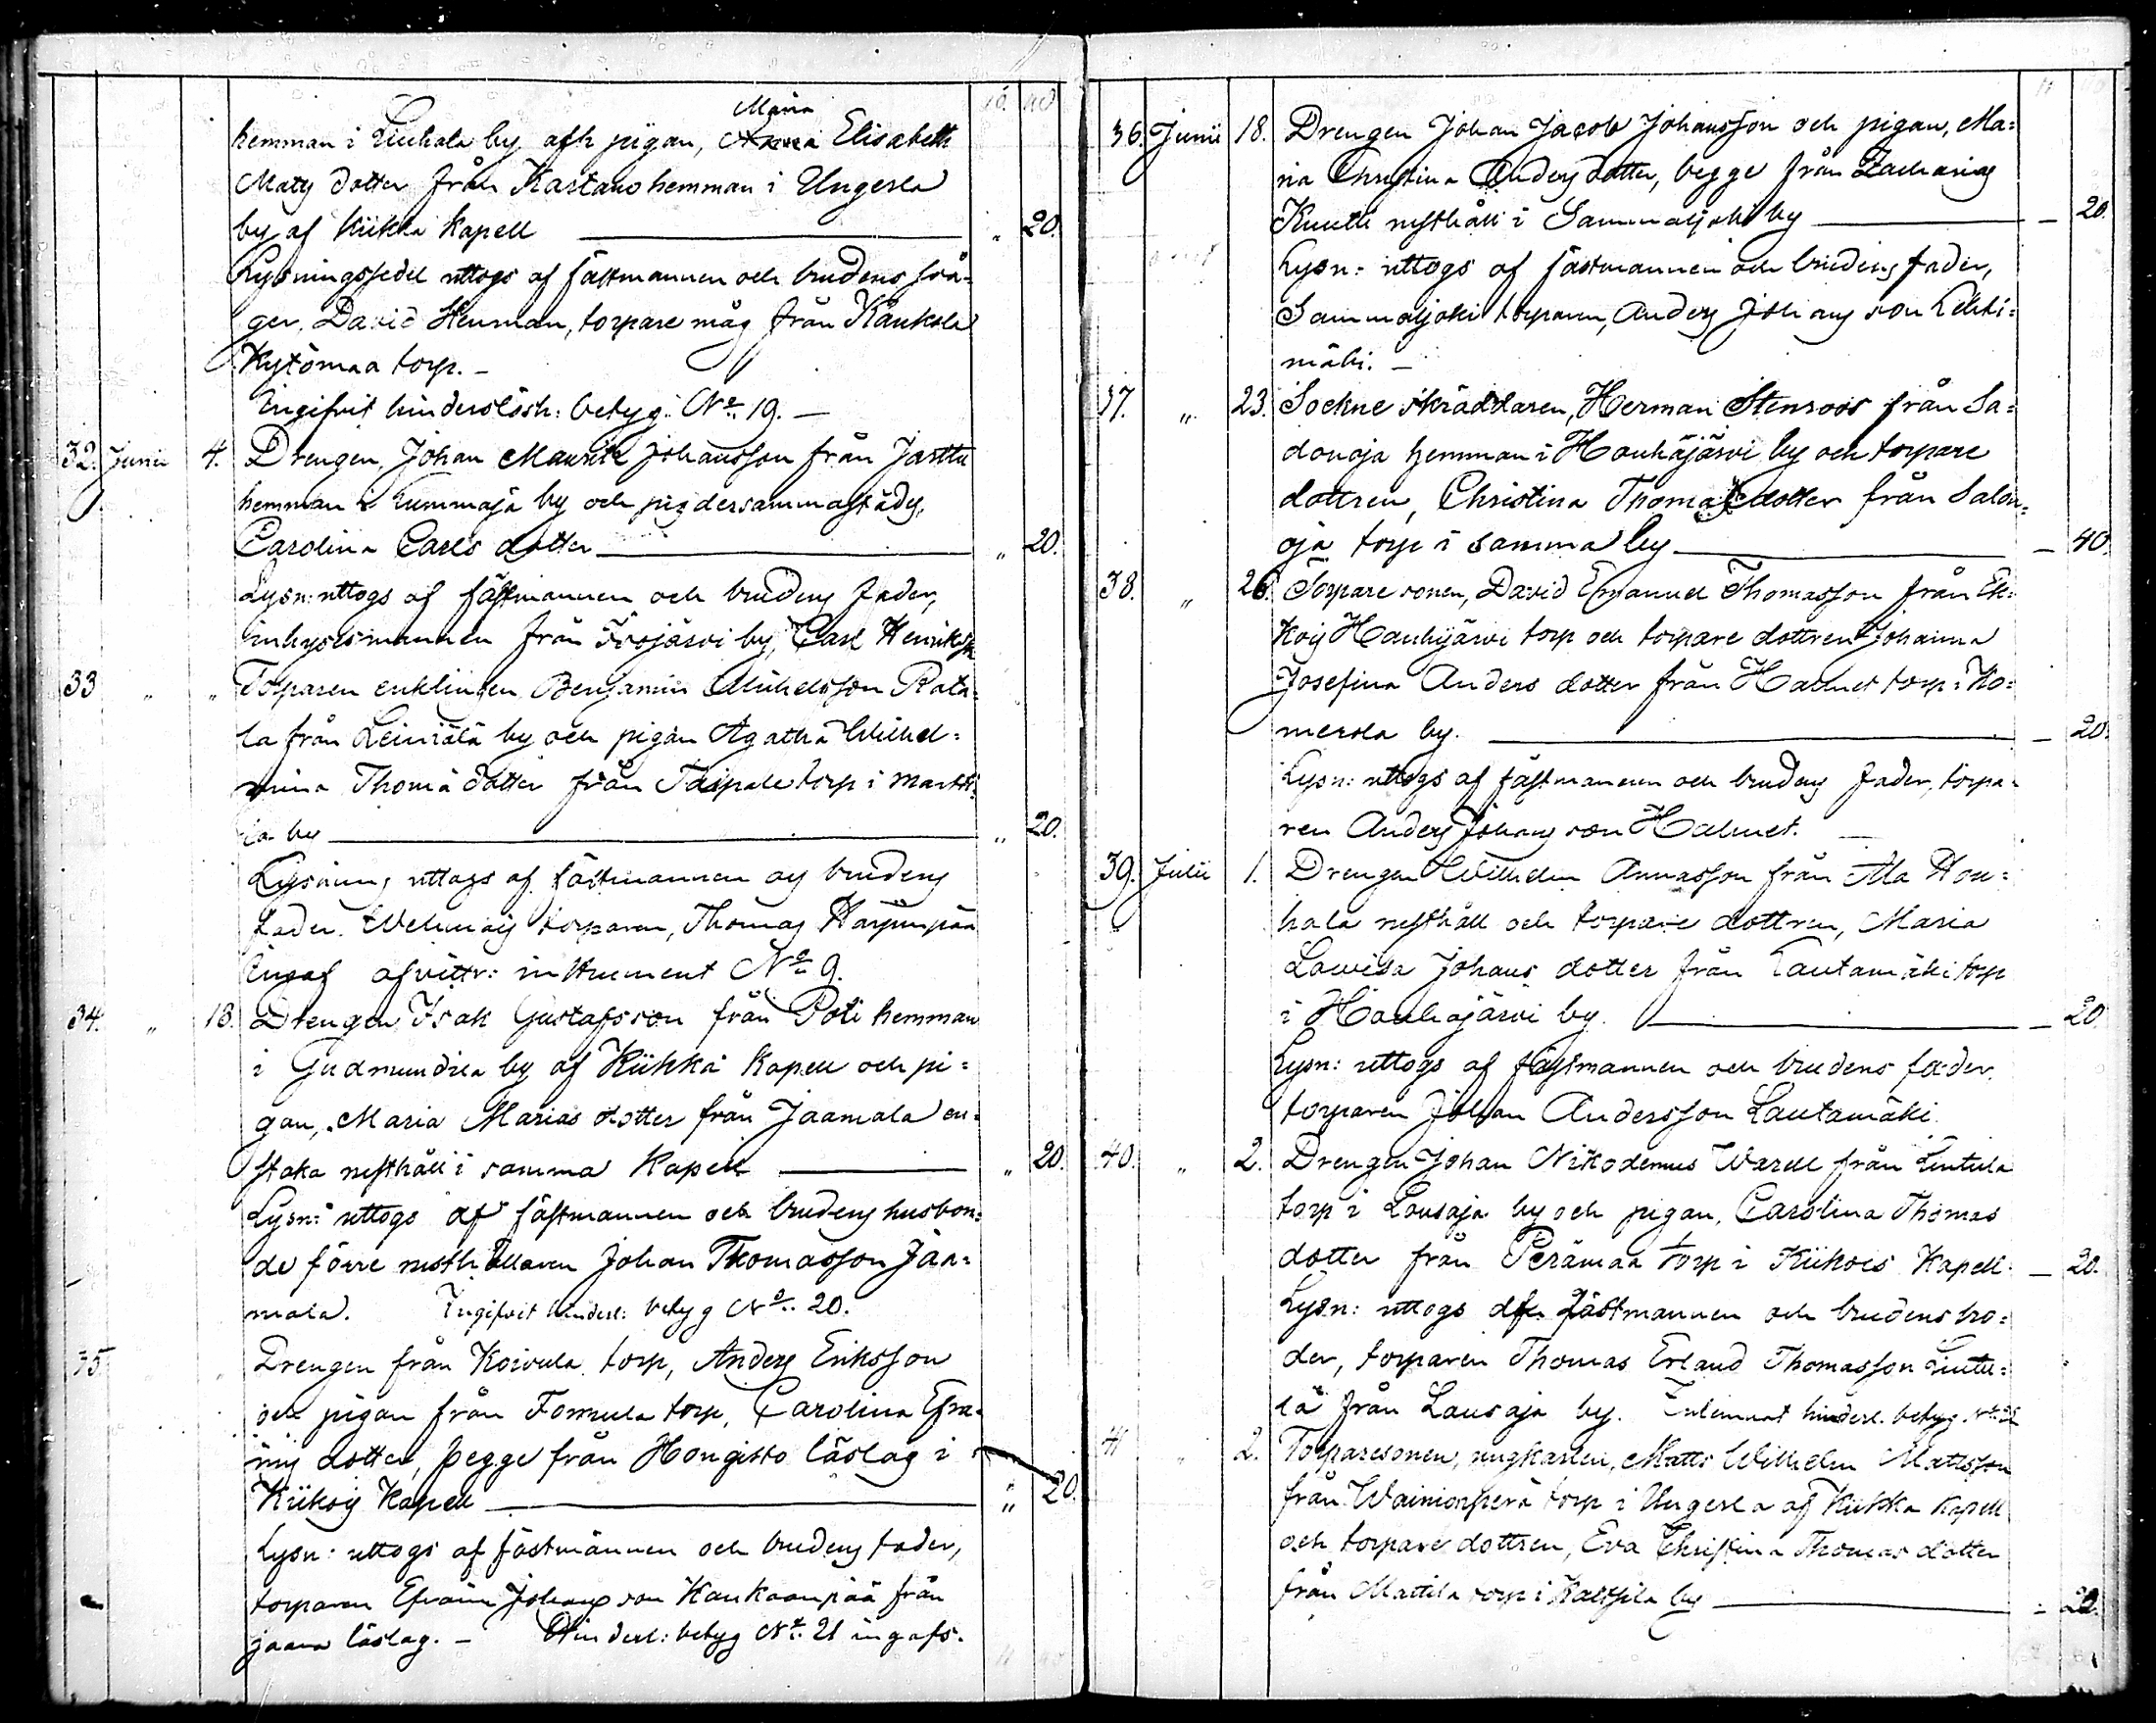 Maria
hemman i Liuhala by och pigan, Anna Elisabeth
Mats dotter från Kastano hemman i Ungesla
by af Kiikka Kapell " 20.
Lysningssedel uttogs af fästmannen och brudens svå-
ger, David Henman, torpare måg från Kaukola
Kytömaa torp. -
Ingifvit hinderslösh: betyg No 19. -
32. Junii 4. Drengen, Johan Maurits Johansson från Jarttu
hemman i Kummaja by och pig dersammastäds,
Carolina Carls dotter " 20.
Lysn: uttogs af fästmannen och brudens fader,
inhysesmannen från by, Carl Henriksson
33 " " Torparen enklingen Benjamin Michelsson Rata-
la från Leiniälä by och pigan Agatha Wilhel=
mina Thomä dotter från Taipale torp i Martti-
la by " 20.
Lysning uttogs af fästmannen og brudens
fader. torparen, Thomas Harjunpää
Ingaf afvittr: instrument No 9.
34. " 13. Drengen Isak Gustafsson från Poti hemman
i Gudmundila by af Kiikka Kapell och pi=
gan, Maria Marias dotter från Jaamala en-
staka rusthåll i samma Kapell " 20.
Lysn: uttogs af fästmannen och brudens husbon-
de förre rusthållaren Johan Thomasson Jaa-
mala. Ingifvit hindersl: betyg No 20.
35. Drengen från Koivula torp, Anders Eriksson
och pigan från Tomula torp, Carolina Efra-
ims dotter, begge från Hongisto läslag i
Kiikois Kapell " 20.
Lysn: uttogs af fästmannen och brudens fader,
torparen Efraim Johansson Kankaanpää från
jaara läslag. - Hindersl: betyg No 21 ingafs.
36. Junii 18. Drengen Johan Jacob Johansson och pigan, Ma=
ria Christina Anders dotter, begge från Zacharias
Knutti rusthåll i Sammaljoki by - 20.
Lysn: uttogs af fästmannen och brudens fader,
Sammaljoki torparen, Anders Johans son Lehti=
mäki. -
37. " 23. Sockne skräddaren, Herman Stenroos från Sa=
donoja hemman i Houhajärvi by och torpare
dottren, Christina Thomas dotter från Salon-
oja torp i samma by - 40.
38. " 26. Torpare sonen, David Emanuel Thomasson från Ek-
kois Hauhijärvi torp och torpare dottren Johanna
Josefina Anders dotter från Halmet torp i Ko=
merola by. - 20.
Lysn: uttogs af fästmannen och brudens fader, torpa-
ren Anders Johans son Halmet. -
39. Julii 1. Drengen Wilhelm Annasson från Ala Hou=
hala rusthåll och torpare dottren, Maria
Lovisa Johans dotter från Lautamäki torp
i Houhajärvi by. - 20
Lysn: uttogs af fästmannen och brudens fader,
torparen Johan Andersson Lautamäki.
40. " 2. Drengen Johan Nikodemus Warell från Lintula
torp i Lousaja by och pigan, Carolina Thomas
dotter från Perämaa torp i Kiikois Kapell. - 20.
Lysn: uttogs af fästmannen och brudens bro=
der, torparen Thomas Erland Thomasson Lintu=
la från Lausaja by. Inlemnat hindersl. betyg No
41 " 2. Torparesonen, ungkarlen, Matts Wilhelm Mattsson
från Wainionperä torp i Ungesla af Kiikka Kapell
och torpare dottren, Eva Christina Thomas dotter
från Mattila torp i Kaltsila by - 20.